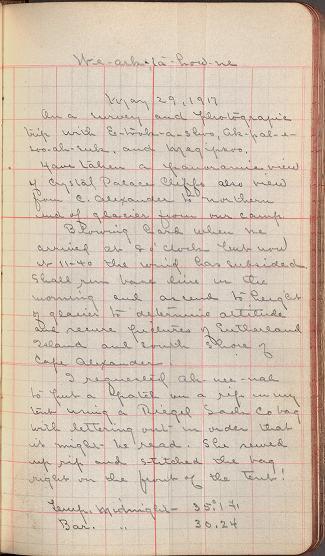 We-ark-ta-how-ne
May 29, 1917
On a survey and Photograpic
trip with E-took-a-shoo, Ah-pal-e-
soo-ah-suk, and Megipsoo.
Have taken a panoramic view
of Crystal Palace Cliffs also view
from C. Alexander to northern
end of glacier from our camp.
Blowing hard when we
arrived at 8 o'clock but now
at 11-40 the wind has subsided.
Shall run base line in the
morning and ascend to height
of glacier to determine altitude
and secure pictures of Sutherland
Island and south shore of
Cape Alexander.
I requested Ah-nee-nah
to put a patch on a rip in my
tent using a Riegel Sack Co bag
with lettering out in order that
it might be read. She sewed
up rip and stitched the bag
right on the front of the tent!
Temp. Midnight - 35°.
Bar. " 30.24